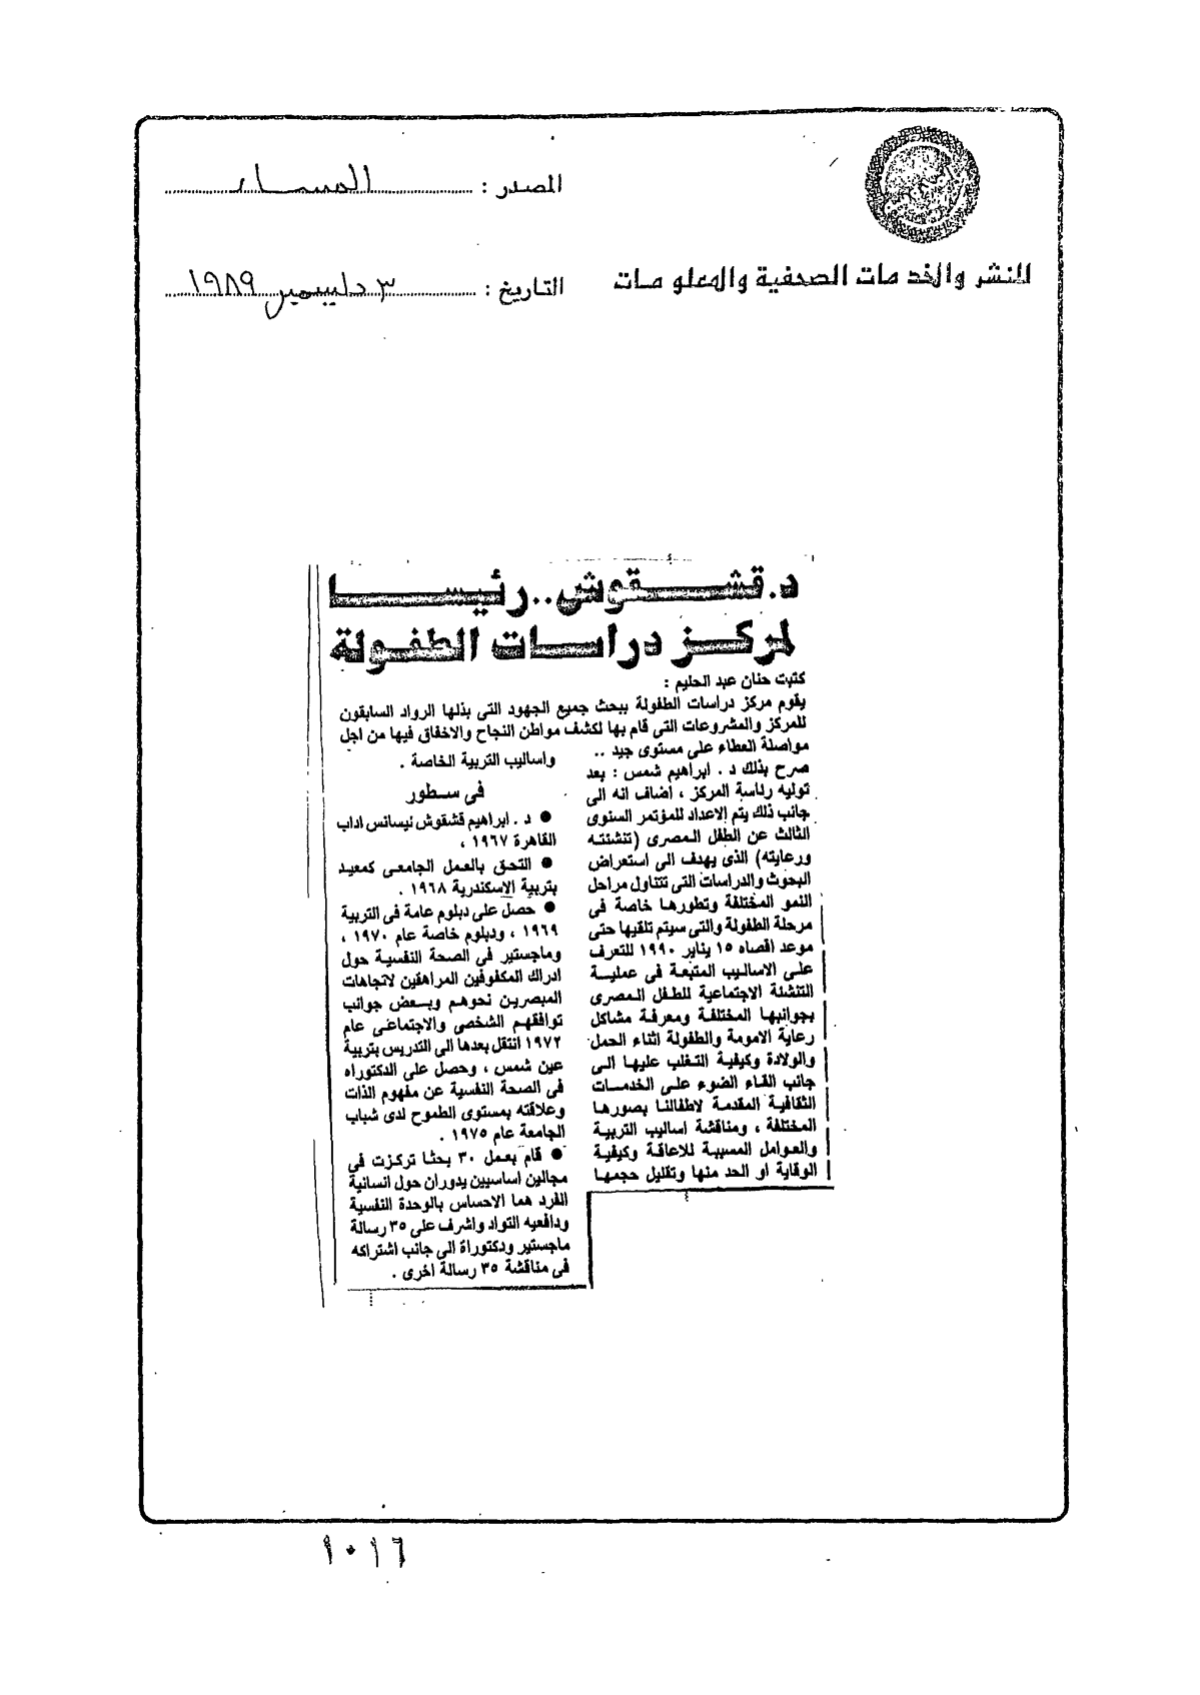 المصدر : المساء
للنشر والخدمات الصحفية والمعلومات
التاريخ : ٣ ديسمبر ١٩٨٩
د. قشقوش.. رئيسا
لمركز دراسات الطفولة
كتبت حنان عبد الحليم :
يقوم مركز دراسات الطفولة ببحث جميع الجهود التى بذلها الرواد السابقون
للمركز والمشروعات التى قام بها لكشف مواطن النجاح والاخفاق فيها من اجل
مواصلة العطاء على مستوى جيد ..
صرح بذلك د . ابراهيم شمس : بعد
توليه رئاسة المركز ، اضاف انه الى
جانب ذلك يتم الاعداد للمؤتمر السنوى
الثالث عن الطفل المصرى (تنشئته
ورعايته) الذى يهدف الى استعراض
البحوث والدراسات التى تتناول مراحل
النمو المختلفة وتطورها خاصة فى
مرحلة الطفولة والتى سيتم تلقيها حتى
موعد اقصاه ١٥ يناير ١٩٩٠ للتعرف
على الاساليب المتبعة فى عملية
التنشئة الاجتماعية للطفل المصرى
بجوانبها المختلفة ومعرفة مشاكل
رعاية الامومة والطفولة اثناء الحمل
والولادة وكيفية التغلب عليها الى
جانب القاء الضوء على الخدمات
الثقافية المقدمة لاطفالنا بصورها
المختلفة ، ومناقشة اساليب التربية
والعوامل المسببة للاعاقة وكيفية
الوقاية او الحد منها وتقليل حجمها
واساليب التربية الخاصة .
فى سطور
● د . ابراهيم قشقوش ليسانس اداب
القاهرة ١٩٦٧ ،
● التحق بالعمل الجامعى كمعيد
بتربية الاسكندرية ١٩٦٨ .
● حصل على دبلوم عامة فى التربية
١٩٦٩ ، ودبلوم خاصة عام ١٩٧٠ ،
وماجستير فى الصحة النفسية حول
ادراك المكفوفين المراهقين لاتجاهات
المبصرين نحوهم وبعض جوانب
توافقهم الشخصى والاجتماعى عام
١٩٧٢ انتقل بعدها الى التدريس بتربية
عين شمس ، وحصل على الدكتوراه
فى الصحة النفسية عن مفهوم الذات
وعلاقته بمستوى الطموح لدى شباب
الجامعة عام ١٩٧٥ .
● قام بعمل ٣٠ بحثا تركزت فى
مجالين اساسيين يدوران حول انسانية
الفرد هما الاحساس بالوحدة النفسية
ودافعيه التواد واشرف على ٣٥ رسالة
ماجستير ودكتوراة الى جانب اشتراكه
فى مناقشة ٣٥ رسالة اخرى .
١٠١٦